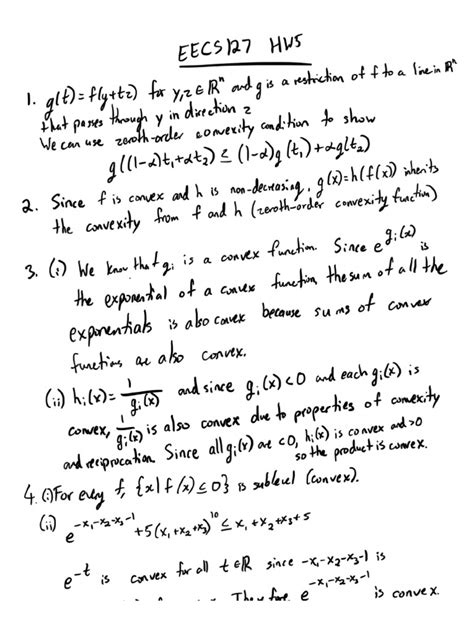 EECS127 HW5
1. g(t)=f(y+tz) for y,z∈ℝⁿ and g is a restriction of f to a line in ℝⁿ
that passes through y in direction z
We can use zeroth-order convexity condition to show
g((1-α)t₁+αt₂) ≤ (1-α)g(t₁)+αg(t₂)
2. Since f is convex and h is non-decreasing, g(x)=h(f(x)) inherits
the convexity from f and h (zeroth-order convexity function)
3. (i) We know that gᵢ is a convex function. Since e^{gᵢ(x)} is
the exponential of a convex function, the sum of all the
exponentials is also convex because sums of convex
functions are also convex.
(ii) hᵢ(x)= 1/gᵢ(x) and since gᵢ(x)<0 and each gᵢ(x) is
convex, 1/gᵢ(x) is also convex due to properties of convexity
and reciprocation. Since all gᵢ(x) are <0, hᵢ(x) is convex and >0
so the product is convex.
4. (i) For every f, {x|f(x)≤0} is sublevel (convex).
(ii) e^{-x₁-x₂-x₃-1} +5(x₁+x₂+x₃)^{10} ≤ x₁+x₂+x₃+5
e^{-t} is convex for all t∈ℝ since -x₁-x₂-x₃-1 is
Therefore e^{-x₁-x₂-x₃-1} is convex.